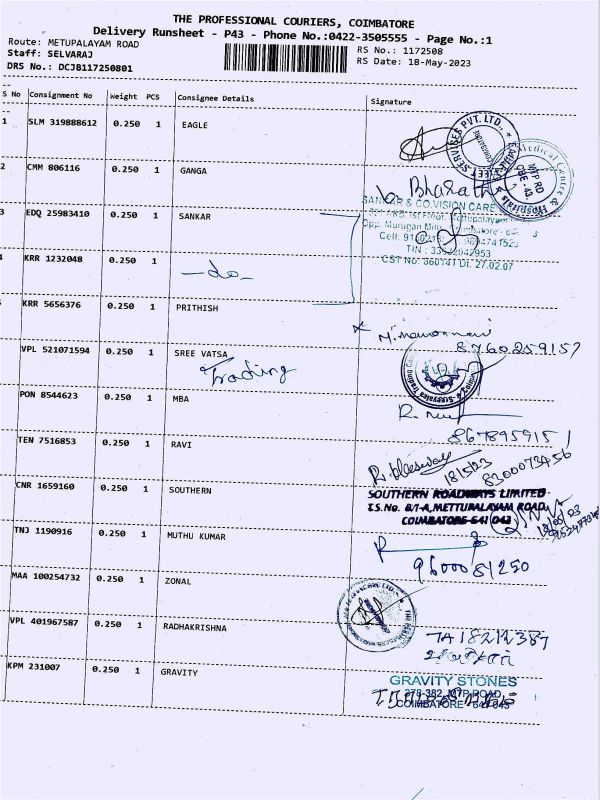 THE PROFESSIONAL COURIERS, COIMBATORE
Delivery Runsheet - P43 - Phone No.:0422-3505555 - Page No.:1
Route: METUPALAYAM ROAD
RS No.: 1172508
Staff: SELVARAJ
RS Date: 18-May-2023
DRS No.: DCJB117250801
S No Consignment No Weight PCS Consignee Details Signature
1 SLM 319888612 0.250 1 EAGLE
2 CMM 806116 0.250 1 GANGA
Bharath
3 EDQ 25983410 0.250 1 SANKAR
SANKAR & CO.VISION CARE
TIN : 33932042953
CST No: 860141 Dt. 27.02.07
KRR 1232048 0.250 1 -do-
KRR 5656376 0.250 1 PRITHISH
8760259157
VPL 521071594 0.250 1 SREE VATSA
Trading
PON 8544623 0.250 1 MBA
TEN 7516853 0.250 1 RAVI
8300073456
CNR 1659160 0.250 1 SOUTHERN
SOUTHERN ROADWAYS LIMITED
T.S.No. 8/1-A, METTUPALAYAM ROAD,
COIMBATORE-641 043
TNJ 1190916 0.250 1 MUTHU KUMAR
9600081250
MAA 100254732 0.250 1 ZONAL
VPL 401967587 0.250 1 RADHAKRISHNA
KPM 231007 0.250 1 GRAVITY
GRAVITY STONES
378-382, MTP ROAD,
COIMBATORE - 641 043